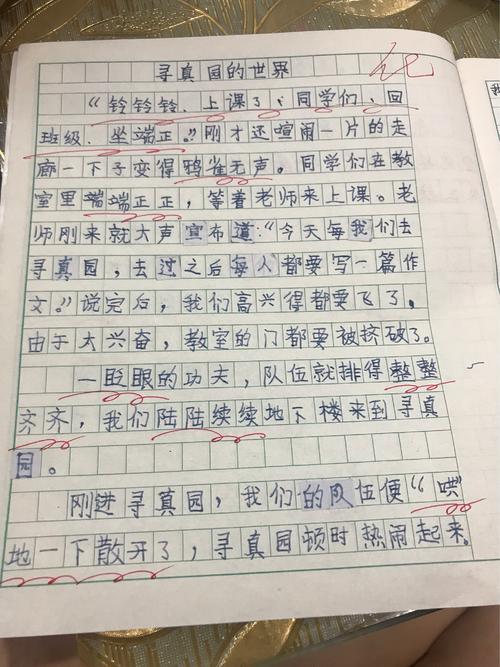 寻真园的世界
“铃铃铃、上课了;同学们、回
班级、坐端正。”刚才还喧闹一片的走
廊一下子变得鸦雀无声。同学们在教
室里端端正正,等着老师来上课。老
师刚来就大声宣布道:“今天每我们去
寻真园,去过之后每人都要写一篇作
文。”说完后,我们高兴得都要飞了。
由于太兴奋,教室的门都要被挤破了。
一眨眼的功夫,队伍就排得整整
齐齐,我们陆陆续续地下楼来到寻真
园。
刚进寻真园,我们的队伍便“哄”
地一下散开了,寻真园顿时热闹起来。